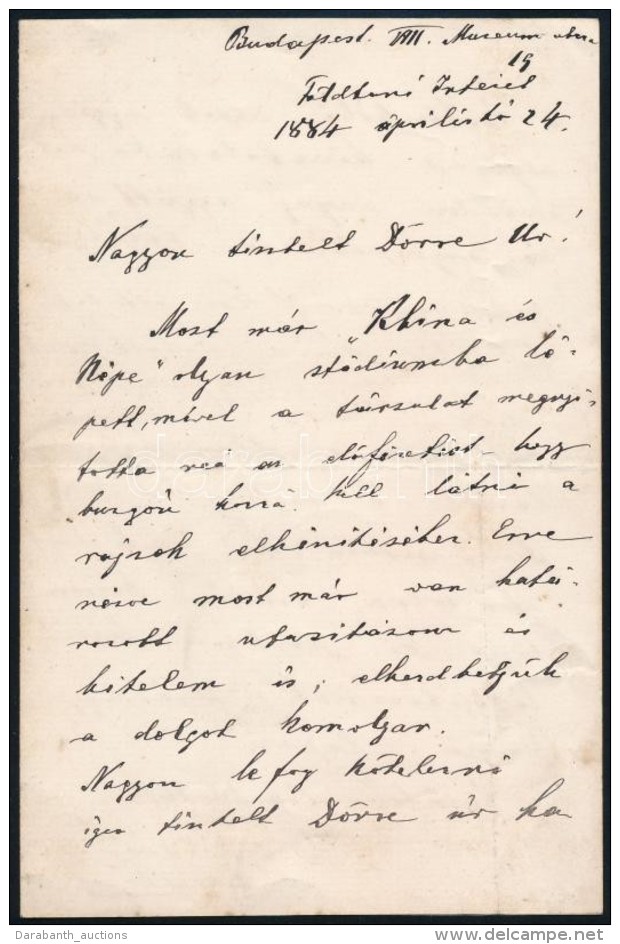 Budapest. VIII. Museum utcza
19
Földtani Intézet
1884 április hó 24.
Nagyon tisztelt Dörre Úr!
Most már "Khina és
Népe" olyan stádiumba lé-
pett, mivel a társulat megnyi-
totta reá az előfizetést – hogy
buzgón hozzá kell látni a
rajzok elkészítéséhez. Erre
nézve most már van hatá-
rozott utasításom és
hitelem is; elkezdhetjük
a dolgot komolyan.
Nagyon le fog kötelezni
igen tisztelt Dörre úr ha
darabanth
Darabanth_auctions
delcampe.net